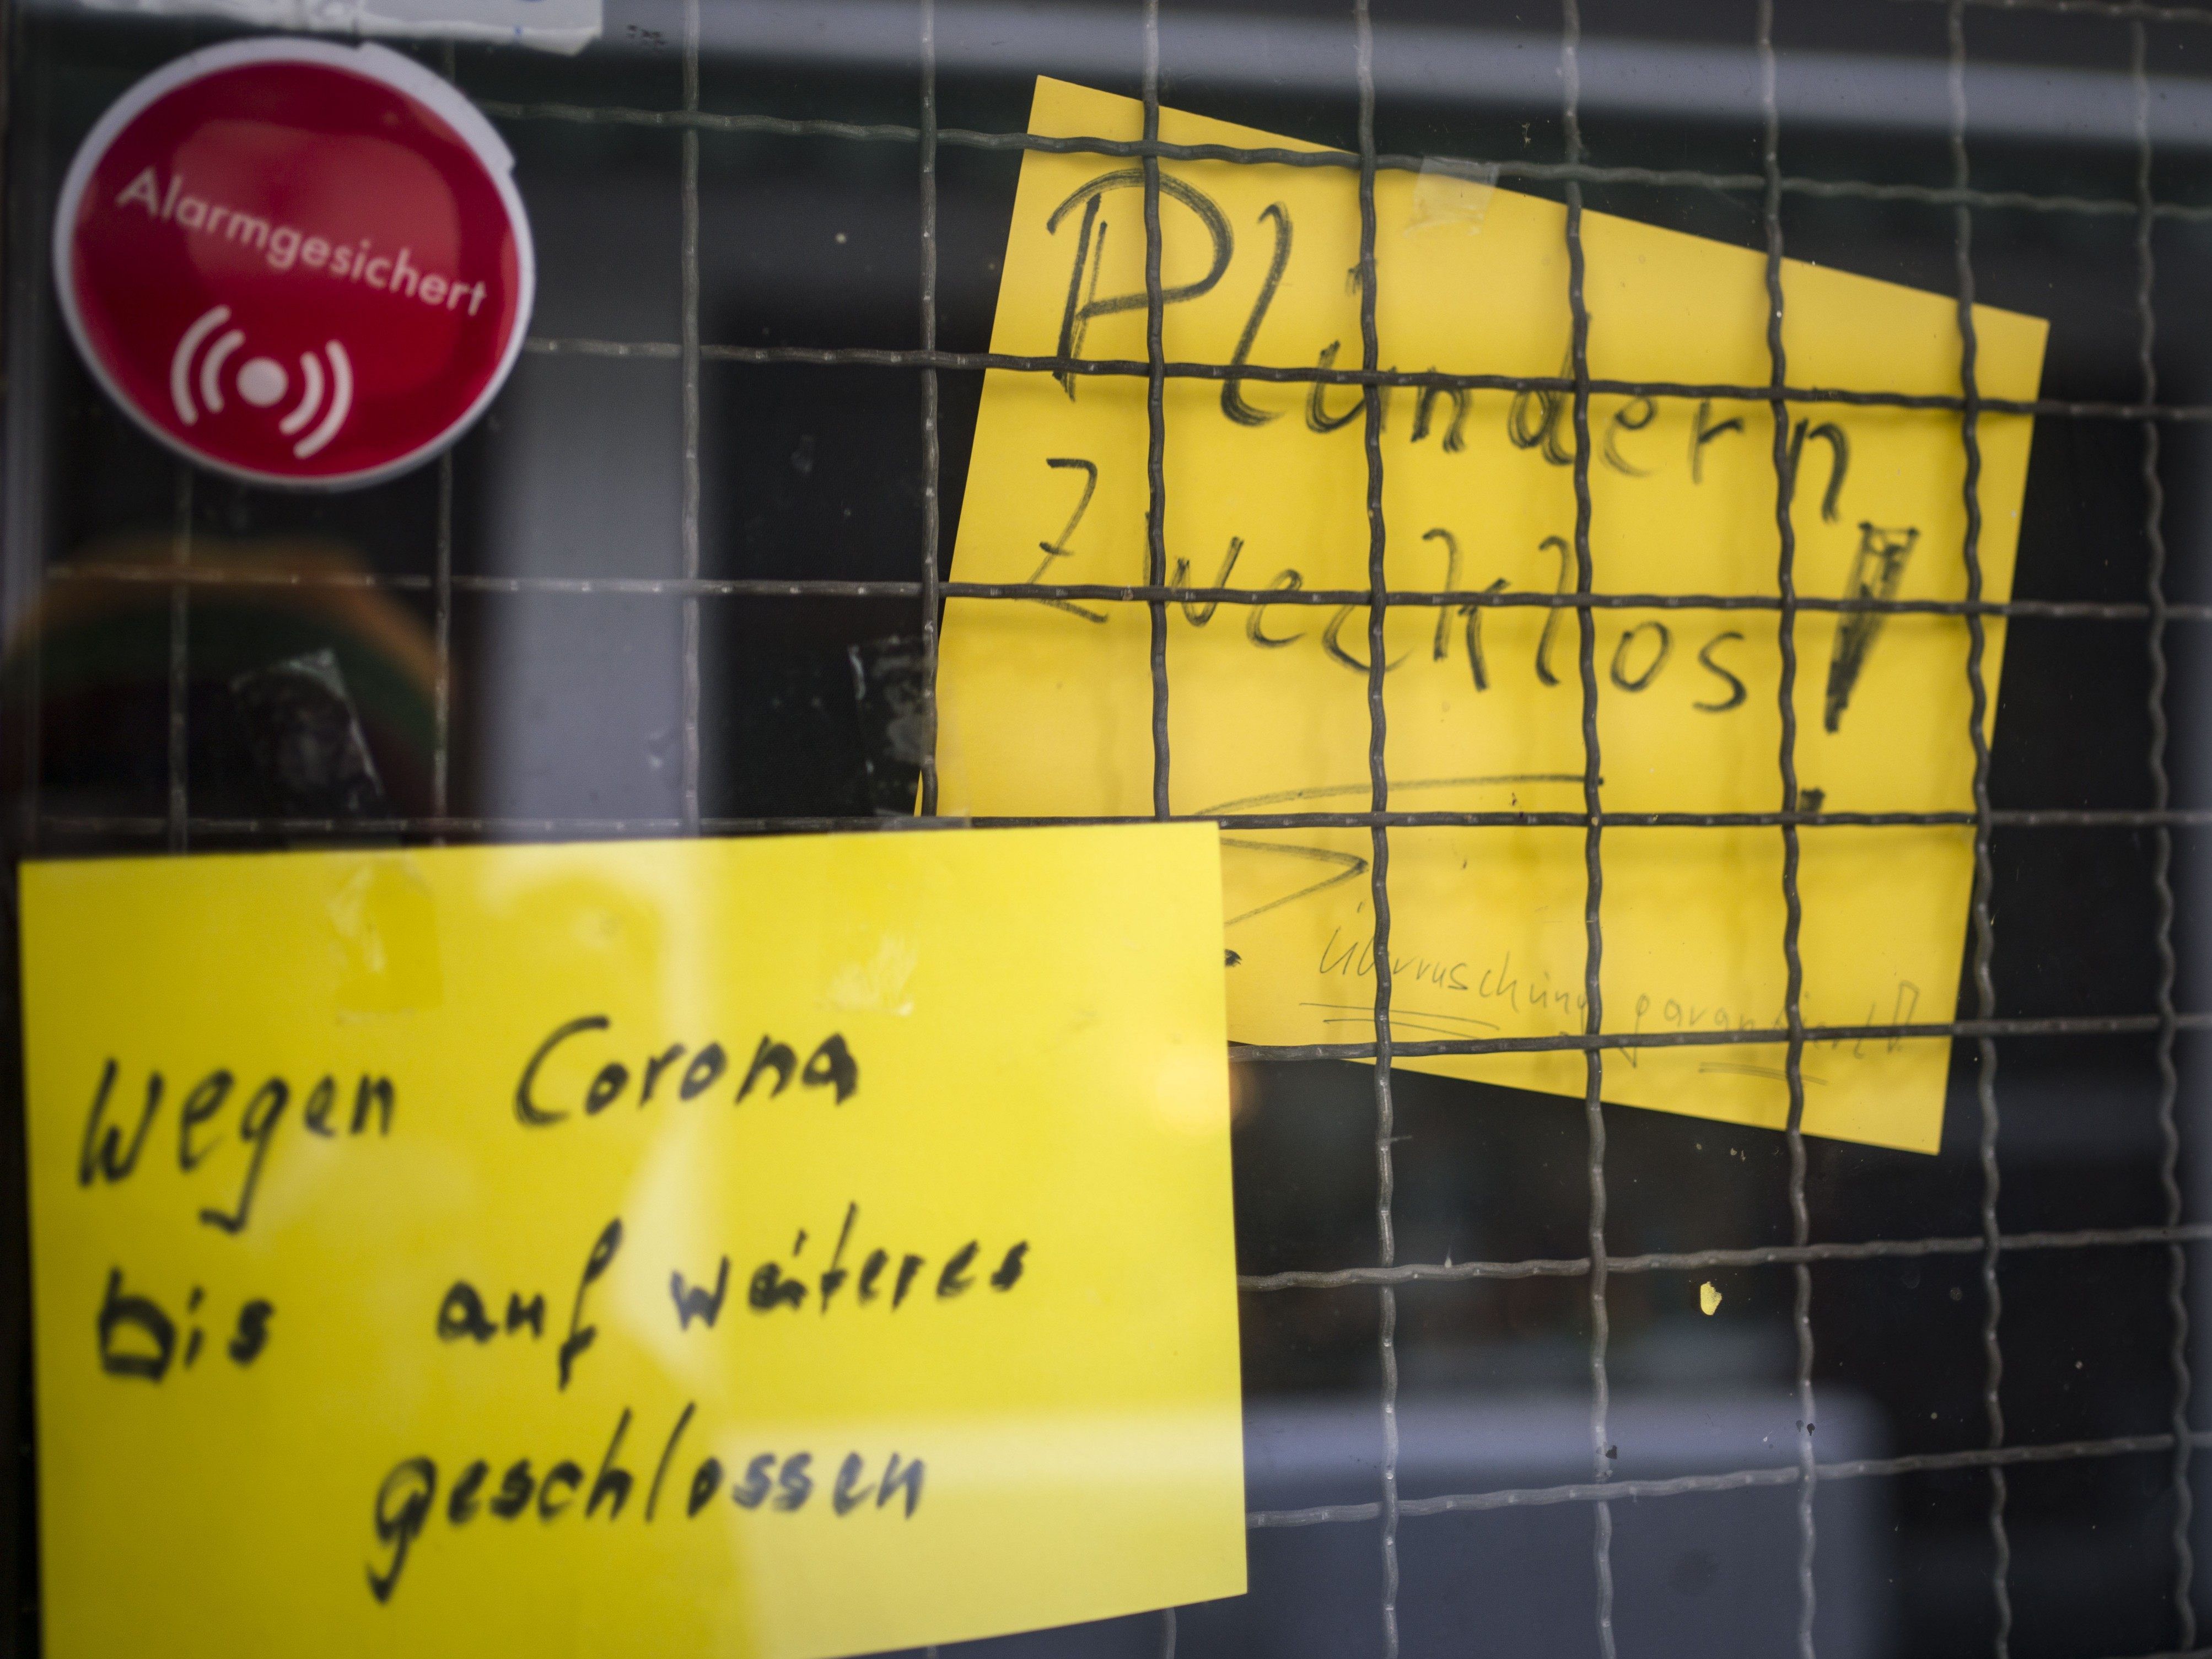 Alarmgesichert
Plündern
Zwecklos!
Überraschung garantiert!
Wegen Corona
bis auf weiteres
geschlossen